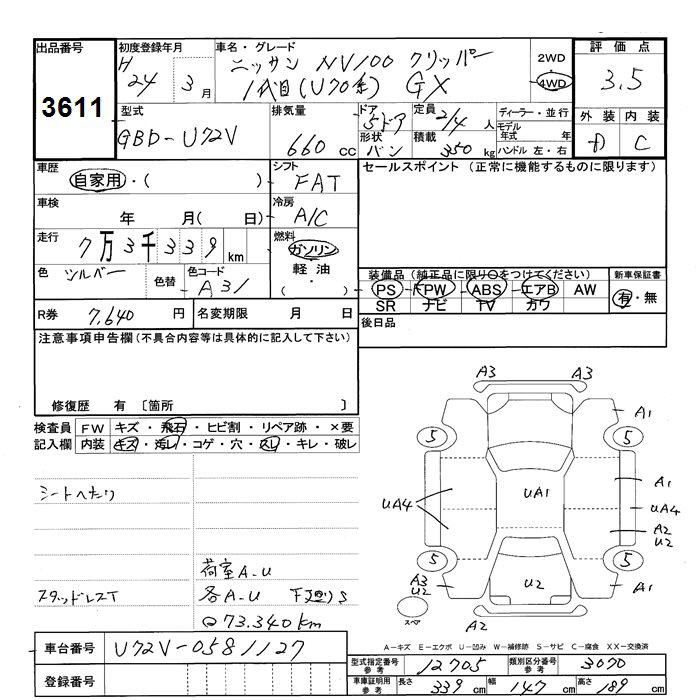 出品番号
3611
初度登録年月
H 24 3月
車名・グレード
ニッサン NV100 クリッパー
1代目(U70系) GX
2WD
4WD
評価点
3.5
外装 内装
D C
型式
GBD-U72V
排気量
660 cc
ドア
5ドア
形状
バン
定員
2/4 人
積載
350 kg
ディーラー・並行
モデル年式 年
ハンドル 左・右
車歴
自家用・( )
シフト
FAT
セールスポイント(正常に機能するものに限ります)
車検
年 月( 日)
冷房
A/C
走行
7万3千339km
燃料
ガソリン
軽油
( ・ )
色
シルバー
色替
色コード
A31
装備品(純正品に限り○をつけてください)
PS PW ABS エアB AW
SR ナビ TV カワ
新車保証書
有・無
R券
7,640 円
名変期限 月 日
後日品
注意事項申告欄(不具合内容等は具体的に記入して下さい)
修復歴 有 〔箇所 〕
検査員記入欄
FW キズ・飛石・ヒビ割・リペア跡・×要
内装 キズ・汚レ・コゲ・穴・スレ・キレ・破レ
シートへたり
荷室A-U
スタッドレスT
各A-U 下廻りS
73,340km
A3 A3
A1
5 5
A1
UA4 UA1 UA4
A2
U2
5 5
A3
U2
U2 A1
スペア
A2
A-キズ E-エクボ U-凹み W-補修跡 S-サビ C-腐食 XX-交換済
車台番号
U72V-0581127
登録番号
型式指定番号
参考
12705
類別区分番号
参考
3070
車庫証明用
参考
長さ 339 cm 幅 147 cm 高さ 189 cm